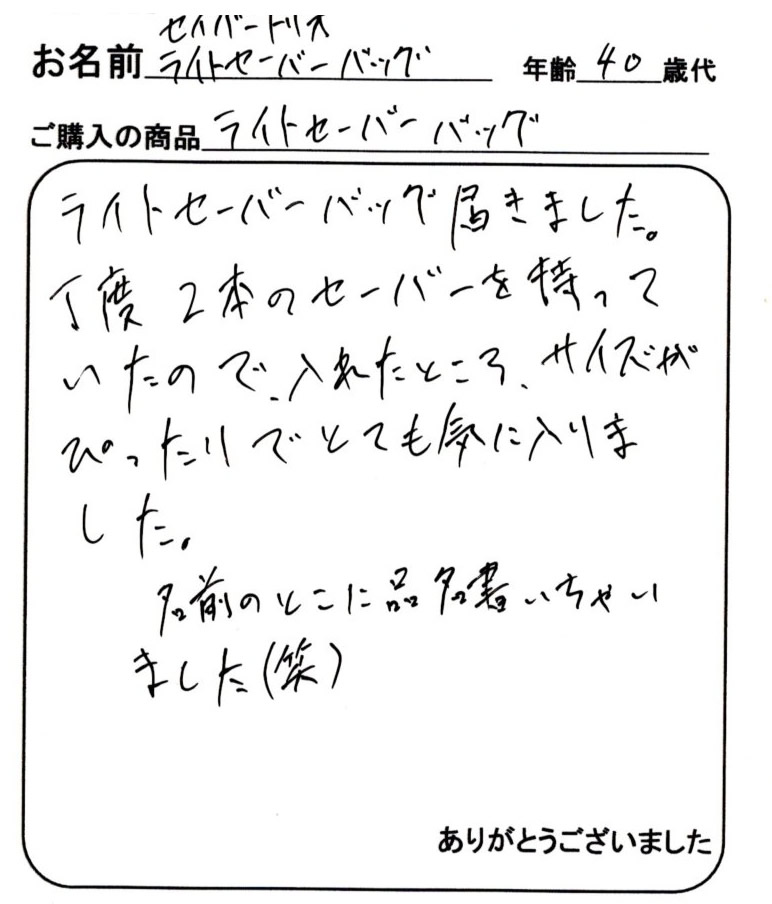 セイバートリオ
お名前 ライトセーバーバッグ 年齢 40 歳代
ご購入の商品 ライトセーバーバッグ
ライトセーバーバッグ届きました。
丁度2本のセーバーを持って
いたので、入れたところ、サイズが
ぴったりでとても気に入りま
した。
名前のとこに品名書いちゃい
ました(笑)
ありがとうございました